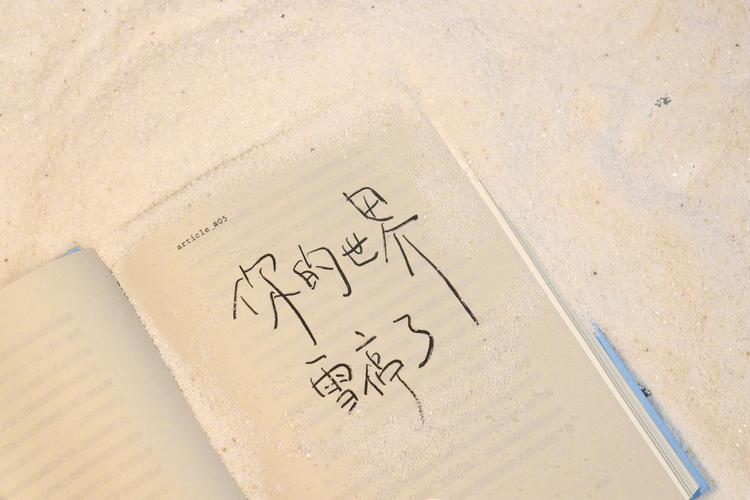 article_#05
你的世界
雪停了